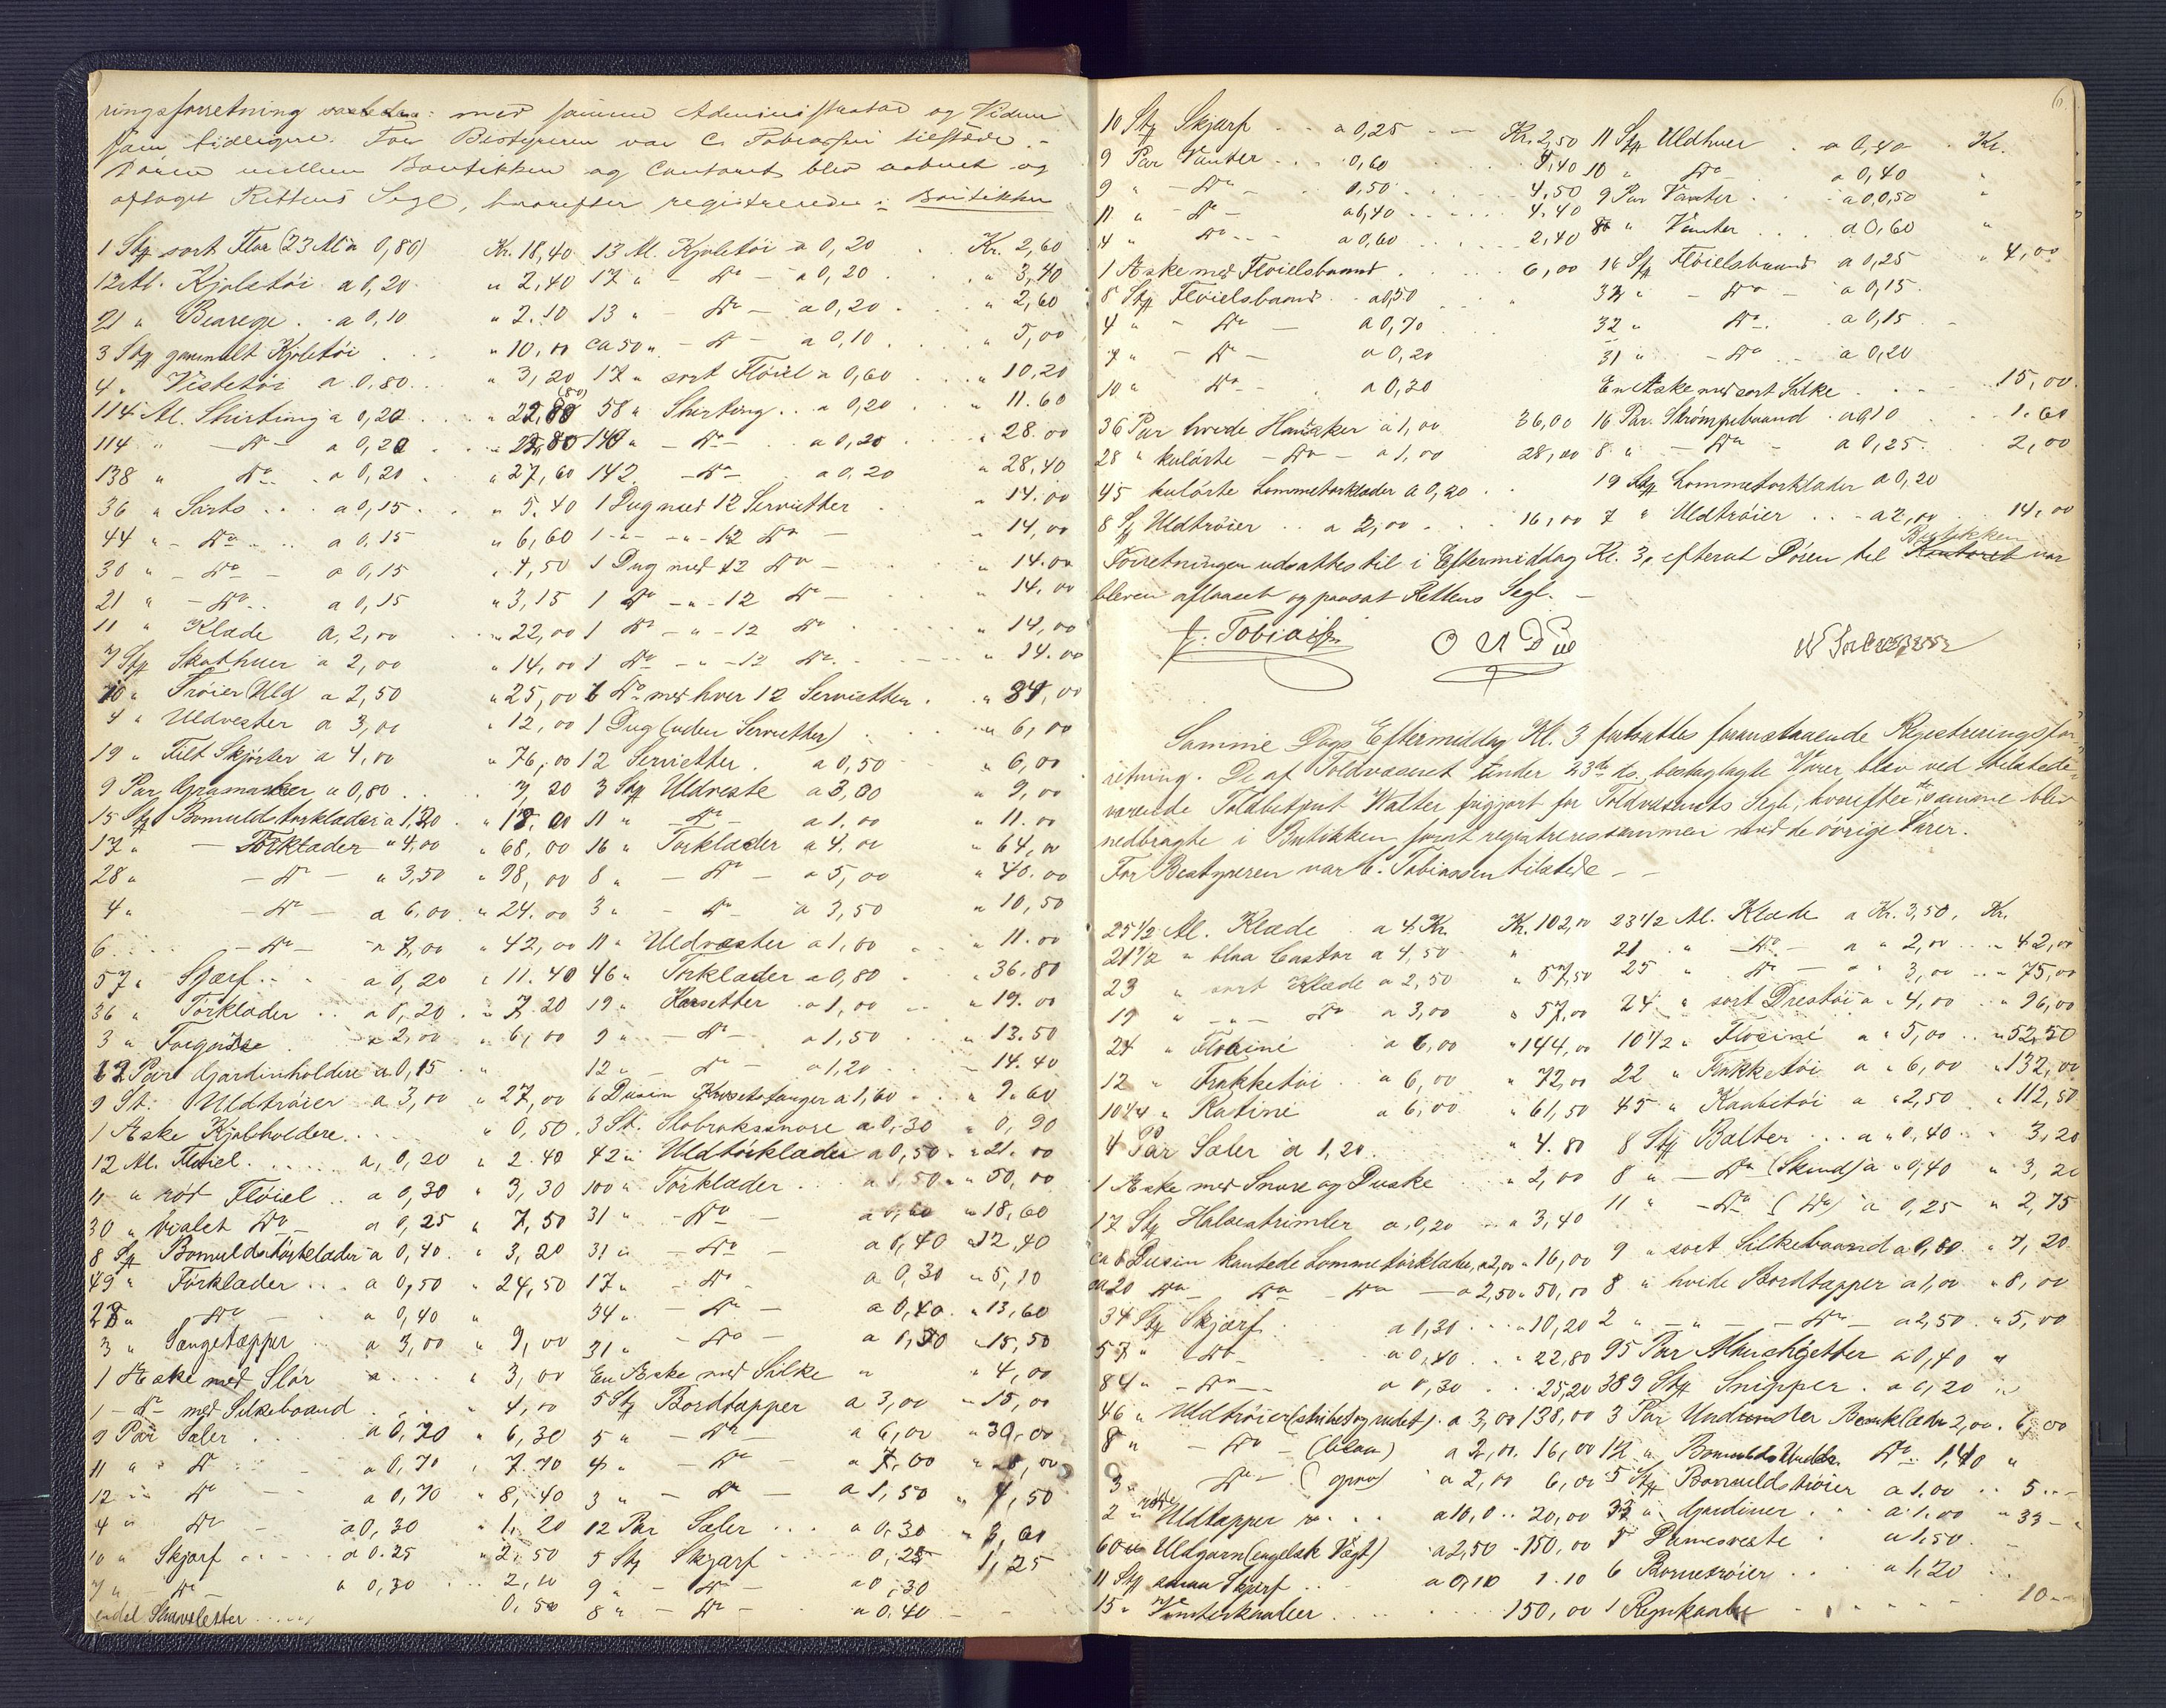 ringsforretning med samme Administrator og Vidner
som tidligere. For Bestyreren var C. Tobiassen tilstede.
Døren mellem Boutikken og Contoret blev aabnet og
aftaget Rettens Segl, hvorefter registreredes i Boutikken
1 Stk sort Flor (23 Al a 0,80) Kr. 18,40
12 Al. Kjoletöi a 0,20 " 2,40
21 " Bearege a 0,10 " 2.10
3 Stk gammelt Kjoletöi " 10,00
4 " Vestetöi a 0,80 " 3,20
114 Al. Shirting a 0,20 " 22,80 (80)
114 " — Do — a 0,20 " 22,80
138 " Do a 0,20 " 27,60
36 " Sarts a 0,15 " 5.40
44 " - Do a 0,15 " 6,60
30 " - Do - a 0,15 " 4,50
21 " - Do a 0,15 " 3,15
11 " Klæde a 2,00 " 22,00
7 Stk Skathuer a 2,00 " 14,00
10 " Trøier Uld a 2,50 " 25,00
4 " Uldvester a 3,00 " 12,00
19 " Filt Skjörter a 4,00 " 76,00
9 Par Gramasker a 0,80 7,20
15 Stk Bomuldstørklæder a 1,20 " 18,00
17 " — Törklæder " 4,00 " 68,00
28 " — Do — " 3,50 " 98,00
4 " — Do — a 6.00 " 24.00
6 — Do — " 7,00 " 42,00
57 " Sjærf a 0,20 " 11.40
36 " Törklæder a 0,20 " 7.20
3 " " 2,00 " 6,00
12 Par Gardinholdere a 0,15 "
9 St. Uldtrøier a 3,00 " 27,00
1 Æske Kjoleholdere " 0,50
12 Al. Fløiel a 0,20 " 2.40
11 " röd Flöiel a 0,30 " 3,30
30 " violet Do a 0,25 " 7,50
8 Stk Bomuldstörklæder a 0,40 " 3,20
49 " Törklæder a 0,50 " 24,50
28 " Do a 0,40 "
3 " Sengetæpper a 3,00 " 9,00
1 Æske med Slör " 3,00
1 - Do med Silkebaand " 4,00
9 Par Sæler a 0,70 " 6,30
11 " Do a 0,70 " 7.70
12 " Do a 0,70 " 8,40
4 " Do - a 0,30 " 1,20
10 " Skjærf a 0.25 " 2,50
7 " - Do - a 0,30 2,10
endel 0,50
13 Al. Kjoletöi a 0,20 Kr. 2,60
17 " - Do - a 0,20 " 3,40
13 " - Do - a 0,20 " 2,60
ca 50 " - Do - a 0,10 " 5,00
17 " sort Flöiel a 0,60 " 10,20
58 " Shirting a 0,20 " 11.60
140 " - Do - a 0,20 " 28.00
142 - Do - a 0,20 " 28,40
1 Dug med 12 Servietter " 14,00
1 - " - - " - 12 Do - " 14,00
1 Dug med 12 Do - " 14.00
1 Do - " - 12 Do - " 14,00
1 Do - " - 12 Do " 14,00
1 Do - " - 12 Do " 14.00
6 Do med hver 12 Servietter " 84,00
1 Dug (uden Servietter) " 6,00
12 Servietter a 0,50 " 6,00
3 Stk Uldveste a 3,00 " 9,00
11 " - Do - a 1,00 " 11.00
16 " Törklæder a 4,00 " 64,00
8 " - Do - a 5,00 " 40.00
3 " - Do - a 3,50 " 10,50
11 " Uldvester a 1,00 " 11.00
46 " Törklæder a 0,80 " 36.80
19 " Korsetter a 1,00 " 19.00
9 " - Do - a 1,50 " 13.50
12 " - Do - a 1,20 14.40
6 Dusin Korsetstanger a 1,60 " 9.60
3 St. Slobroksnore a 0,30 " 0,90
42 " Uldtörklæder a 0,50 " 21.00
100 " Törklæder a 0,50 " 50,00
31 " - Do - a 0,60 " 18,60
31 " - Do - a 0,40 " 12,40
17 " - Do - a 0,30 " 5,10
34 " - Do - a 0,40 " 13,60
31 " - Do a 0,50 " 15,50
En Æske med Silke " " 4,00
5 Stk Bordtæpper a 3,00 " 15,00
5 " - Do - a 6,00 " 30,00
4 " - Do - a 7,00
3 " - Do - a 1,50 " 4,50
12 Par Sæler a 0,30 " 3,60
5 Stk Skjærf 0,25 1,25
9 " - Do - a 0,30
8 " - Do - a 0,40
6
10 Stk Skjærf a 0,25 Kr. 2,50
9 Par Vanter 0,60 5,40
9 " - Do - 0,50 4,50
11 " - Do - a 0,40 4.40
4 " Do a 0,60 2,40
1 Æske med Flöielsbaand 6,00
8 Stk Flöielsbaand a 0,50
4 " - Do - a 0,70
7 " - Do - a 0,20
10 " Do - a 0,30
36 Par hvide Hansker a 1,00 36,00
28 " kulörte - Do - a 1,00 28,00
45 kulörte Lommetørklæder a 0,20
8 Stk Uldtröier a 2,00 16,00
11 Stk Uldhuer a 0,40 Kr.
10 " Do a 0,40 "
9 Par Vanter a 0,50
8 " Vanter a 0,60 "
16 Stk Flöielsbaand a 0,25 " 4,00
32 " - Do - a 0,15
32 " Do a 0,15
31 " - Do - a 0,20
En Æske med sort Silke 15,00
16 Par Strömpebaand a 0,10 1.60
8 " - Do - a 0,25 2,00
19 Stk Lommetørklæder a 0,20
7 " Uldtröier a 2,00 14,00
Forretningen udsattes til i Eftermiddag Kl. 3, efterat Dören til Kontoret Butikken var
bleven aflaaset og paasat Rettens Segl. —
C. Tobiassen
Samme Dags Eftermiddag Kl. 3 fortsattes foranstaaende Registreringsfor-
retning. De af Toldvæsenet under 23de ds. beslaglagte Varer blev ved tilstede-
værende Toldbetjent Walter frigjort for Toldvæsenets Segl, hvorefter de samme blev
nedbragte i Butikken samt registreres sammen med de övrige Varer.
For Bestyreren var C. Tobiassen tilstede — —
25 1/2 Al. Klæde a 4 Kr. Kr. 102,00
21 1/2 " blaa Castor a 4,50 "
23 " sort Klæde a 2,50 " 57,50
19 " - " - Do a 3,00 " 57,00
24 " Flociné a 6,00 " 144,00
12 " Frakketöi a 6,00 " 72,00
10 1/4 " Ratiné a 6,00 " 61,50
4 Par Sæler a 1,20 " 4.80
1 Æske med Snore og Duske " 2,00
17 Stk Halsestrimler a 0,20 " 3,40
ca 8 Dusin kantede Lommetörklæder a 2,00 " 16,00
ca 20 Do Do Do — a 2,50 " 50,00
34 Stk Skjærf a 0,30 " 10,20
57 " - Do - a 0,40 " 22,80
84 " - Do - a 0,30 25,20
46 " Uldtröier (stribet og rudet) a 3,00 138,00
8 " - Do - a 2,00 16,00
3 " Do - a 2,00 6,00
2 " røde Uldtæpper a 10,0 20,00
60 Uldgarn (engelsk Vægt) a 2,50 150,00
11 Stk Skjærf a 0,10 1.10
15 " Vinterkaaber 150,00
23 1/2 Al. Klæde a Kr. 3,50, Kr.
21 " - Do - a " 2,00 " 42,00
25 " Do - " " 3,00 " 75,00
24 " sort Drestöi a " 4,00 " 96,00
10 1/2 " Flociné a " 5,00 " 52,50
22 " Frakketöi a " 6,00 " 132,00
45 " Kaabetöi a " 2,50 " 112,50
8 Stk Bælter a " 0,40 " 3,20
8 " - Do (Skind) a " 0,40 " 3,20
11 " - Do (Do) a 0,25 " 2,75
9 " sort Silkebaand a 0,80 " 7,20
8 " hvide Bordtæpper a 1,00 " 8,00
2 " - " - - Do - a 2,50 " 5,00
95 Par Manchetter a 0,40 "
389 Stk Snipper a 0,20 "
3 Par Benklæder 2,00 6,00
Bomulds Do 1,40 "
5 Stk Bomuldströier a 1.00 5 " -
33 " Gardiner a 1.00 " 33 -
5 Damesveste a 1,50
6 Börnetröier a 1,20
1 Regnkaabe 10 "